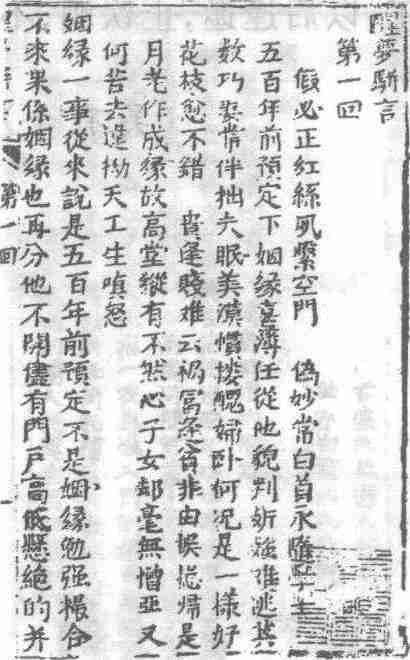 醒夢駢言
第一回
假必正紅絲夙繫空門　偽妙常白首永隨學士
五百年前預定下姻緣喜簿任從他貌判妍媸難逃其
數巧妻常伴拙夫眠美漢慣摟醜婦卧何况是一樣好
花枝愈不錯　貴逢賤难云禍富逢窮非由悞總情是
月老作成緣故高堂縱有不然心子女却毫無憎亞又
何苦去違拗天工生嗔怒
姻緣一事從來說是五百年前預定不是姻緣勉强楊合
不來果係姻緣也再分他不開儘有門戸高低懸絶的并
第一回